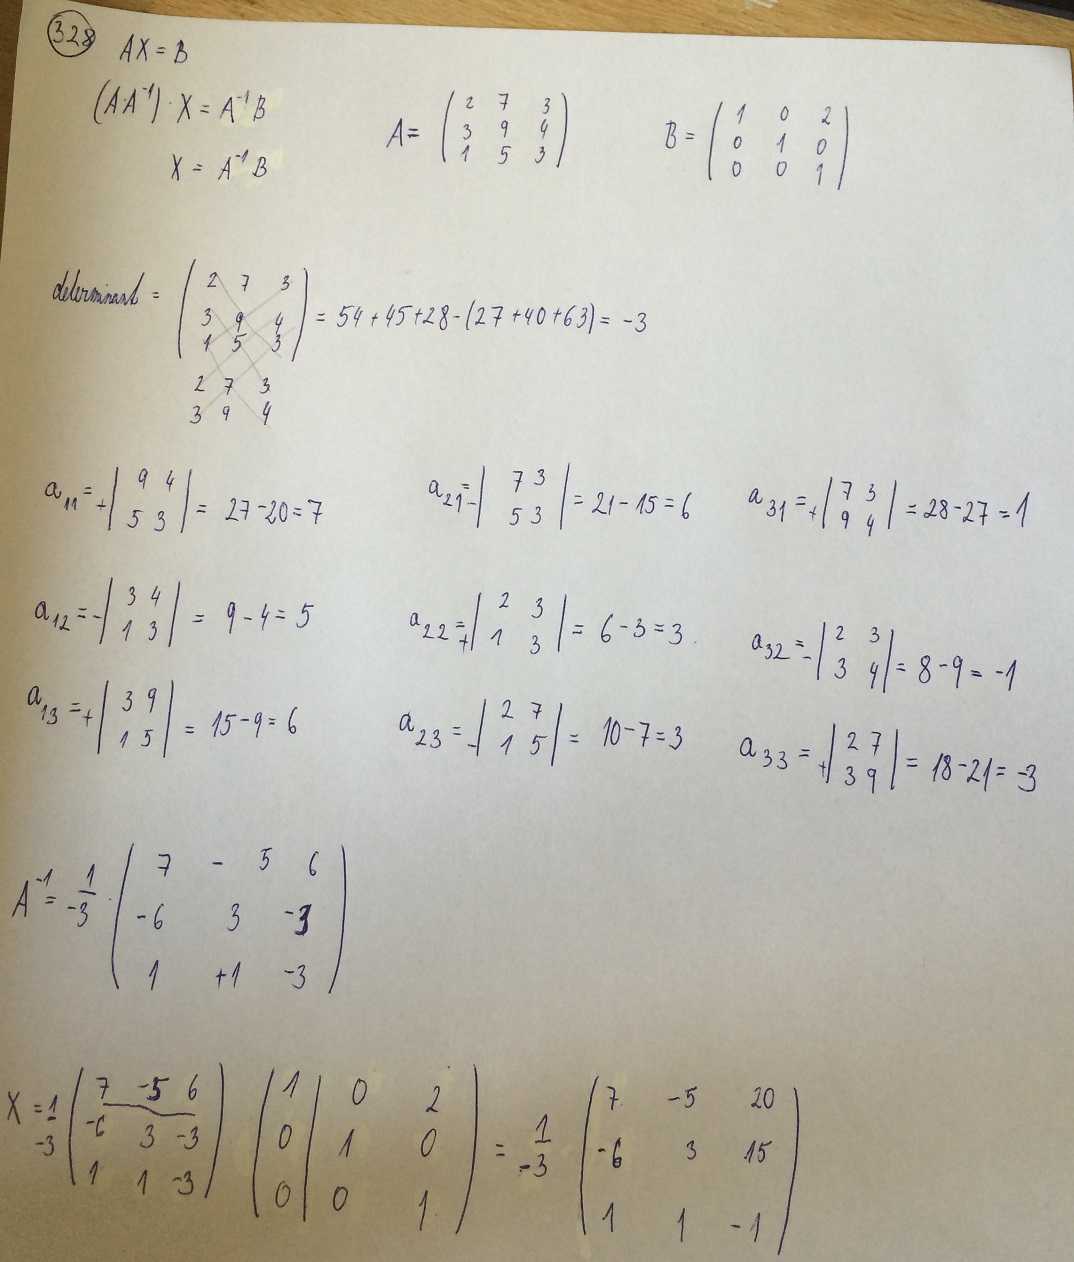 328
AX = B
(A·A⁻¹)·X = A⁻¹B
X = A⁻¹B
A = ( 2 7 3
3 9 4
1 5 3 )
B = ( 1 0 2
0 1 0
0 0 1 )
determinant = ( 2 7 3
3 9 4
1 5 3 ) = 54+45+28-(27+40+63) = -3
2 7 3
3 9 4
a₁₁ = + | 9 4
5 3 | = 27-20=7
a₂₁ = - | 7 3
5 3 | = 21-15=6
a₃₁ = + | 7 3
9 4 | = 28-27=1
a₁₂ = - | 3 4
1 3 | = 9-4=5
a₂₂ = + | 2 3
1 3 | = 6-3=3
a₃₂ = - | 2 3
3 4 | = 8-9=-1
a₁₃ = + | 3 9
1 5 | = 15-9=6
a₂₃ = - | 2 7
1 5 | = 10-7=3
a₃₃ = + | 2 7
3 9 | = 18-21=-3
A⁻¹ = 1/-3 · ( 7 - 5 6
-6 3 -3
1 +1 -3 )
X = 1/-3 ( 7 -5 6
-6 3 -3
1 1 -3 ) ( 1 | 0 2
0 | 1 0
0 | 0 1 ) = 1/-3 ( 7 -5 20
-6 3 15
1 1 -1 )